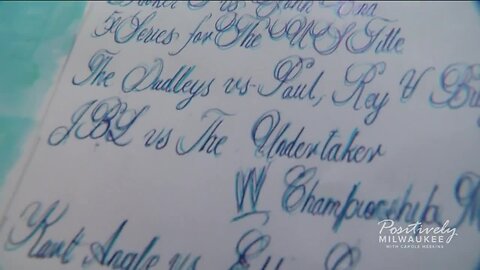 vs John Cena
5 Series for The US Title
The Dudleys vs Paul, Rey &
JBL vs The Undertaker
W Championship
Kurt Angle vs
Positively
MILWAUKEE
WITH CAROLE MEEKINS